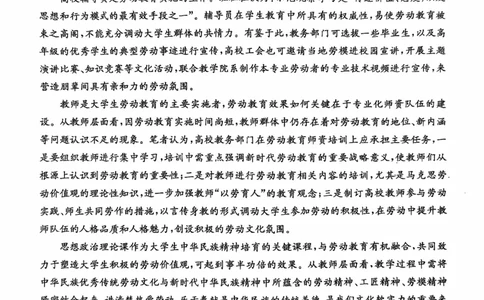 思想和行为模式的最有效手段之一”。辅导员在学生教育中所具有的权威性，易使劳动教育被
束之高阁，不能充分调动大学生群体的共情力。有鉴于此，教务部门可选拔一些毕业生，以及高
年级的优秀学生的典型劳动事迹进行宣传，高校工会也可邀请当地劳模进校园宣讲，开展主题
演讲比赛、知识竞赛等文化活动，联合教学院系制作本专业劳动者的专业技术视频进行宣传，来
营造朋辈间具有亲和力的劳动氛围。
教师是大学生劳动教育的主要实施者，劳动教育效果如何关键在于专业化师资队伍的建
设。从教师层面看，因劳动教育实施时间尚短，教师群体中仍存在着对劳动教育的地位、新内涵
等问题认识不足的现象。笔者认为，高校教务部门在劳动教育师资培训上应承担主要任务，一
是要组织教师进行集中学习，培训中常重点强调新时代劳动教育的重要战略意义，使教师们从
根源上认识到劳动教育的重要性；二是对教师进行劳动教育相关内容的培训，尤其是马克思劳
动价值观的理论性知识，进一步加强教师“以劳育人”的教育观念；三是制订高校教师参与劳动
实践、师生共同劳作的措施，以言传身教的形式调动大学生参加劳动的积极性，在劳动中提升教
师队伍的人格品质和人格魅力，创设积极的劳动文化氛围。
思想政治理论课作为大学生中华民族精神培育的关键课程，与劳动教育有机融合，共同致
力于塑造大学生积极的劳动价值观，可起到事半功倍的效果。从教师层面看，教学过程中需将
中华民族优秀传统劳动文化与新时代中华民族精神中所蕴含的劳动精神、工匠精神、劳模精神